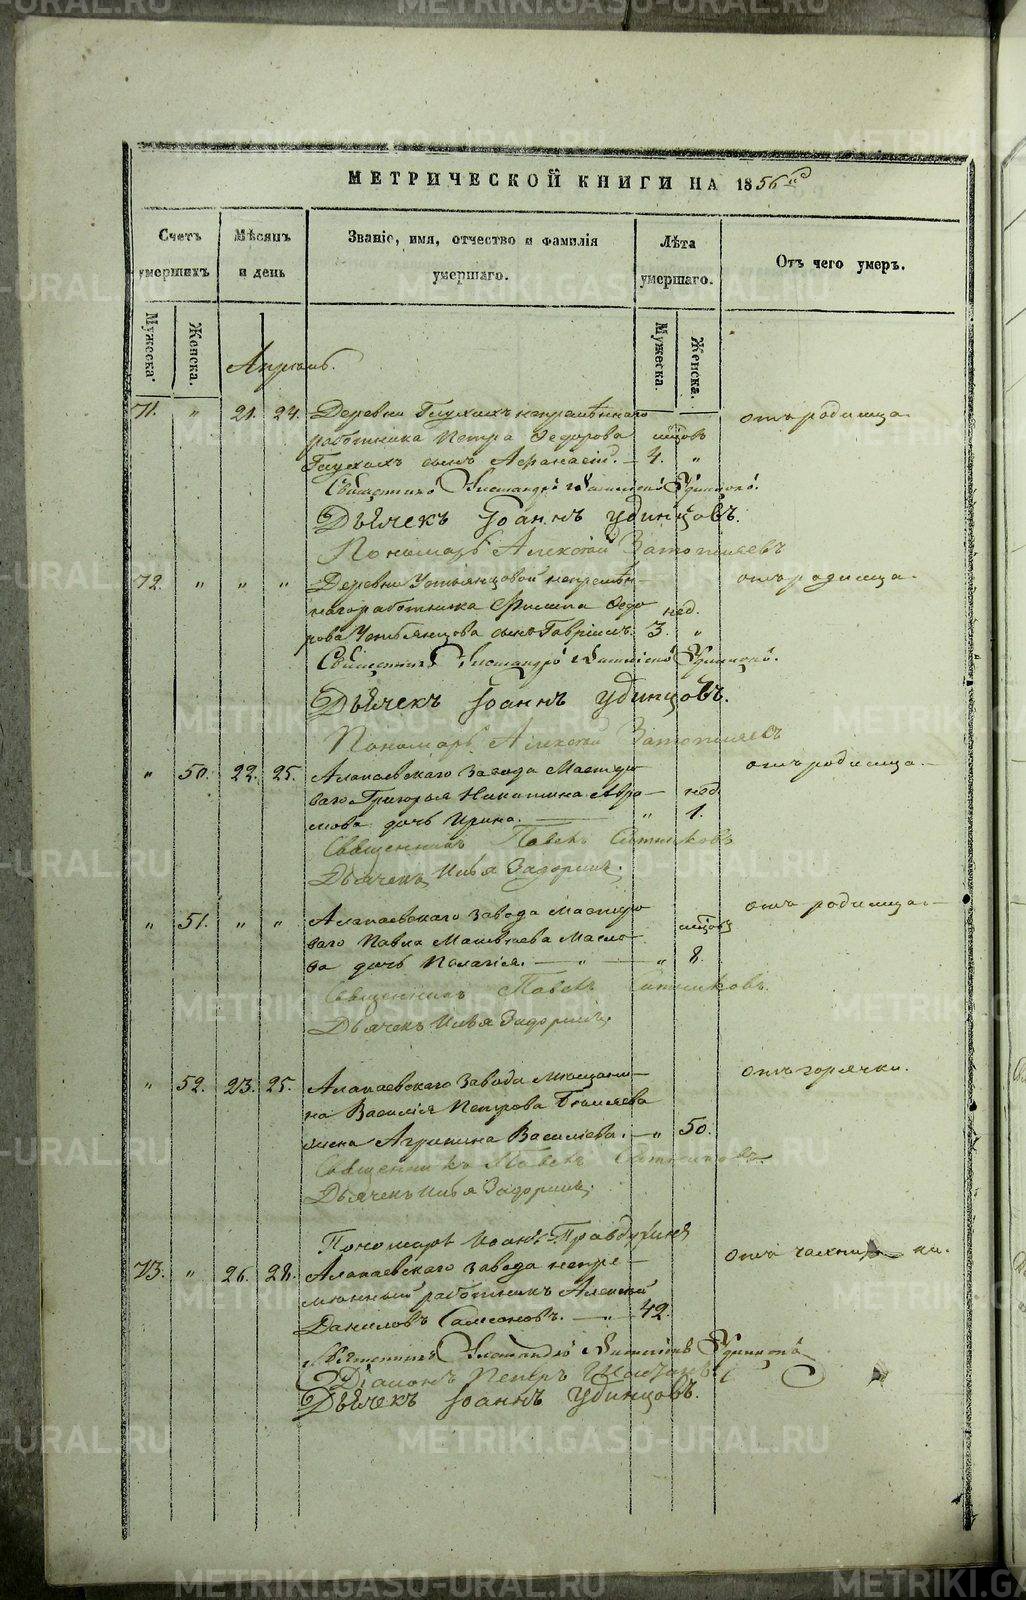 МЕТРИЧЕСКОЙ КНИГИ НА 1856й
Счетъ умершихъ
Мѣсяцъ и день
Званіе, имя, отчество и фамилія умершаго.
Лѣта умершаго.
Отъ чего умеръ.
Мужеска.
Женска.
Мужеска
Женска.
Апрель.
71. " 21. 24. Деревни Глухихъ непремѣннаго отъ родимца.
работника Петра Федорова мѣсцовъ
Глухихъ сынъ Афанасій. — 4. "
Священникъ Александръ Удинцовъ.
Дьячекъ Іоаннъ Удинцовъ.
Пономарь Алексѣй Затопляевъ
72. " " " Деревни Устьянцовой непремѣн- отъ родимца.
наго работника Филипа Федо нед.
рова Устьянцова сынъ Гавріилъ. 3. "
Священникъ Александръ Удинцовъ.
Дьячекъ Іоаннъ Удинцовъ.
Пономарь Алексѣй Затопляевъ
" 50. 22. 25. Алапаевскаго завода Мастеро отъ родимца.
ваго Григорья Никитина Абра— нед.
мова дочь Ирина. — " 1.
Священникъ Павелъ Ситниковъ
Дьячекъ Илья Задоринъ.
" 51. " " Алапаевскаго завода Мастеро отъ родимца.
ваго Павла Матвѣева Масло мѣсцовъ
ва дочь Пелагія. — " — " 8.
Священникъ Павелъ Ситниковъ.
Дьячекъ Илья Задоринъ.
" 52. 23. 25. Алапаевскаго завода Мѣщани— отъ горячки.
на Василія Петрова
жена Агрипина Василіева. — " 50.
Священникъ Павелъ Ситниковъ.
Дьячекъ Илья Задоринъ.
Пономарь Іоанъ Правдухинъ
73. " 26. 28. Алапаевскаго завода непре— отъ чахотки.
мѣнный работникъ Алексѣй
Даниловъ Самсоновъ. — " — 42.
Священникъ Александръ Удинцовъ
Діаконъ Петръ
Дьячекъ Іоаннъ Удинцовъ.
METRIKI.GASO-URAL.RU